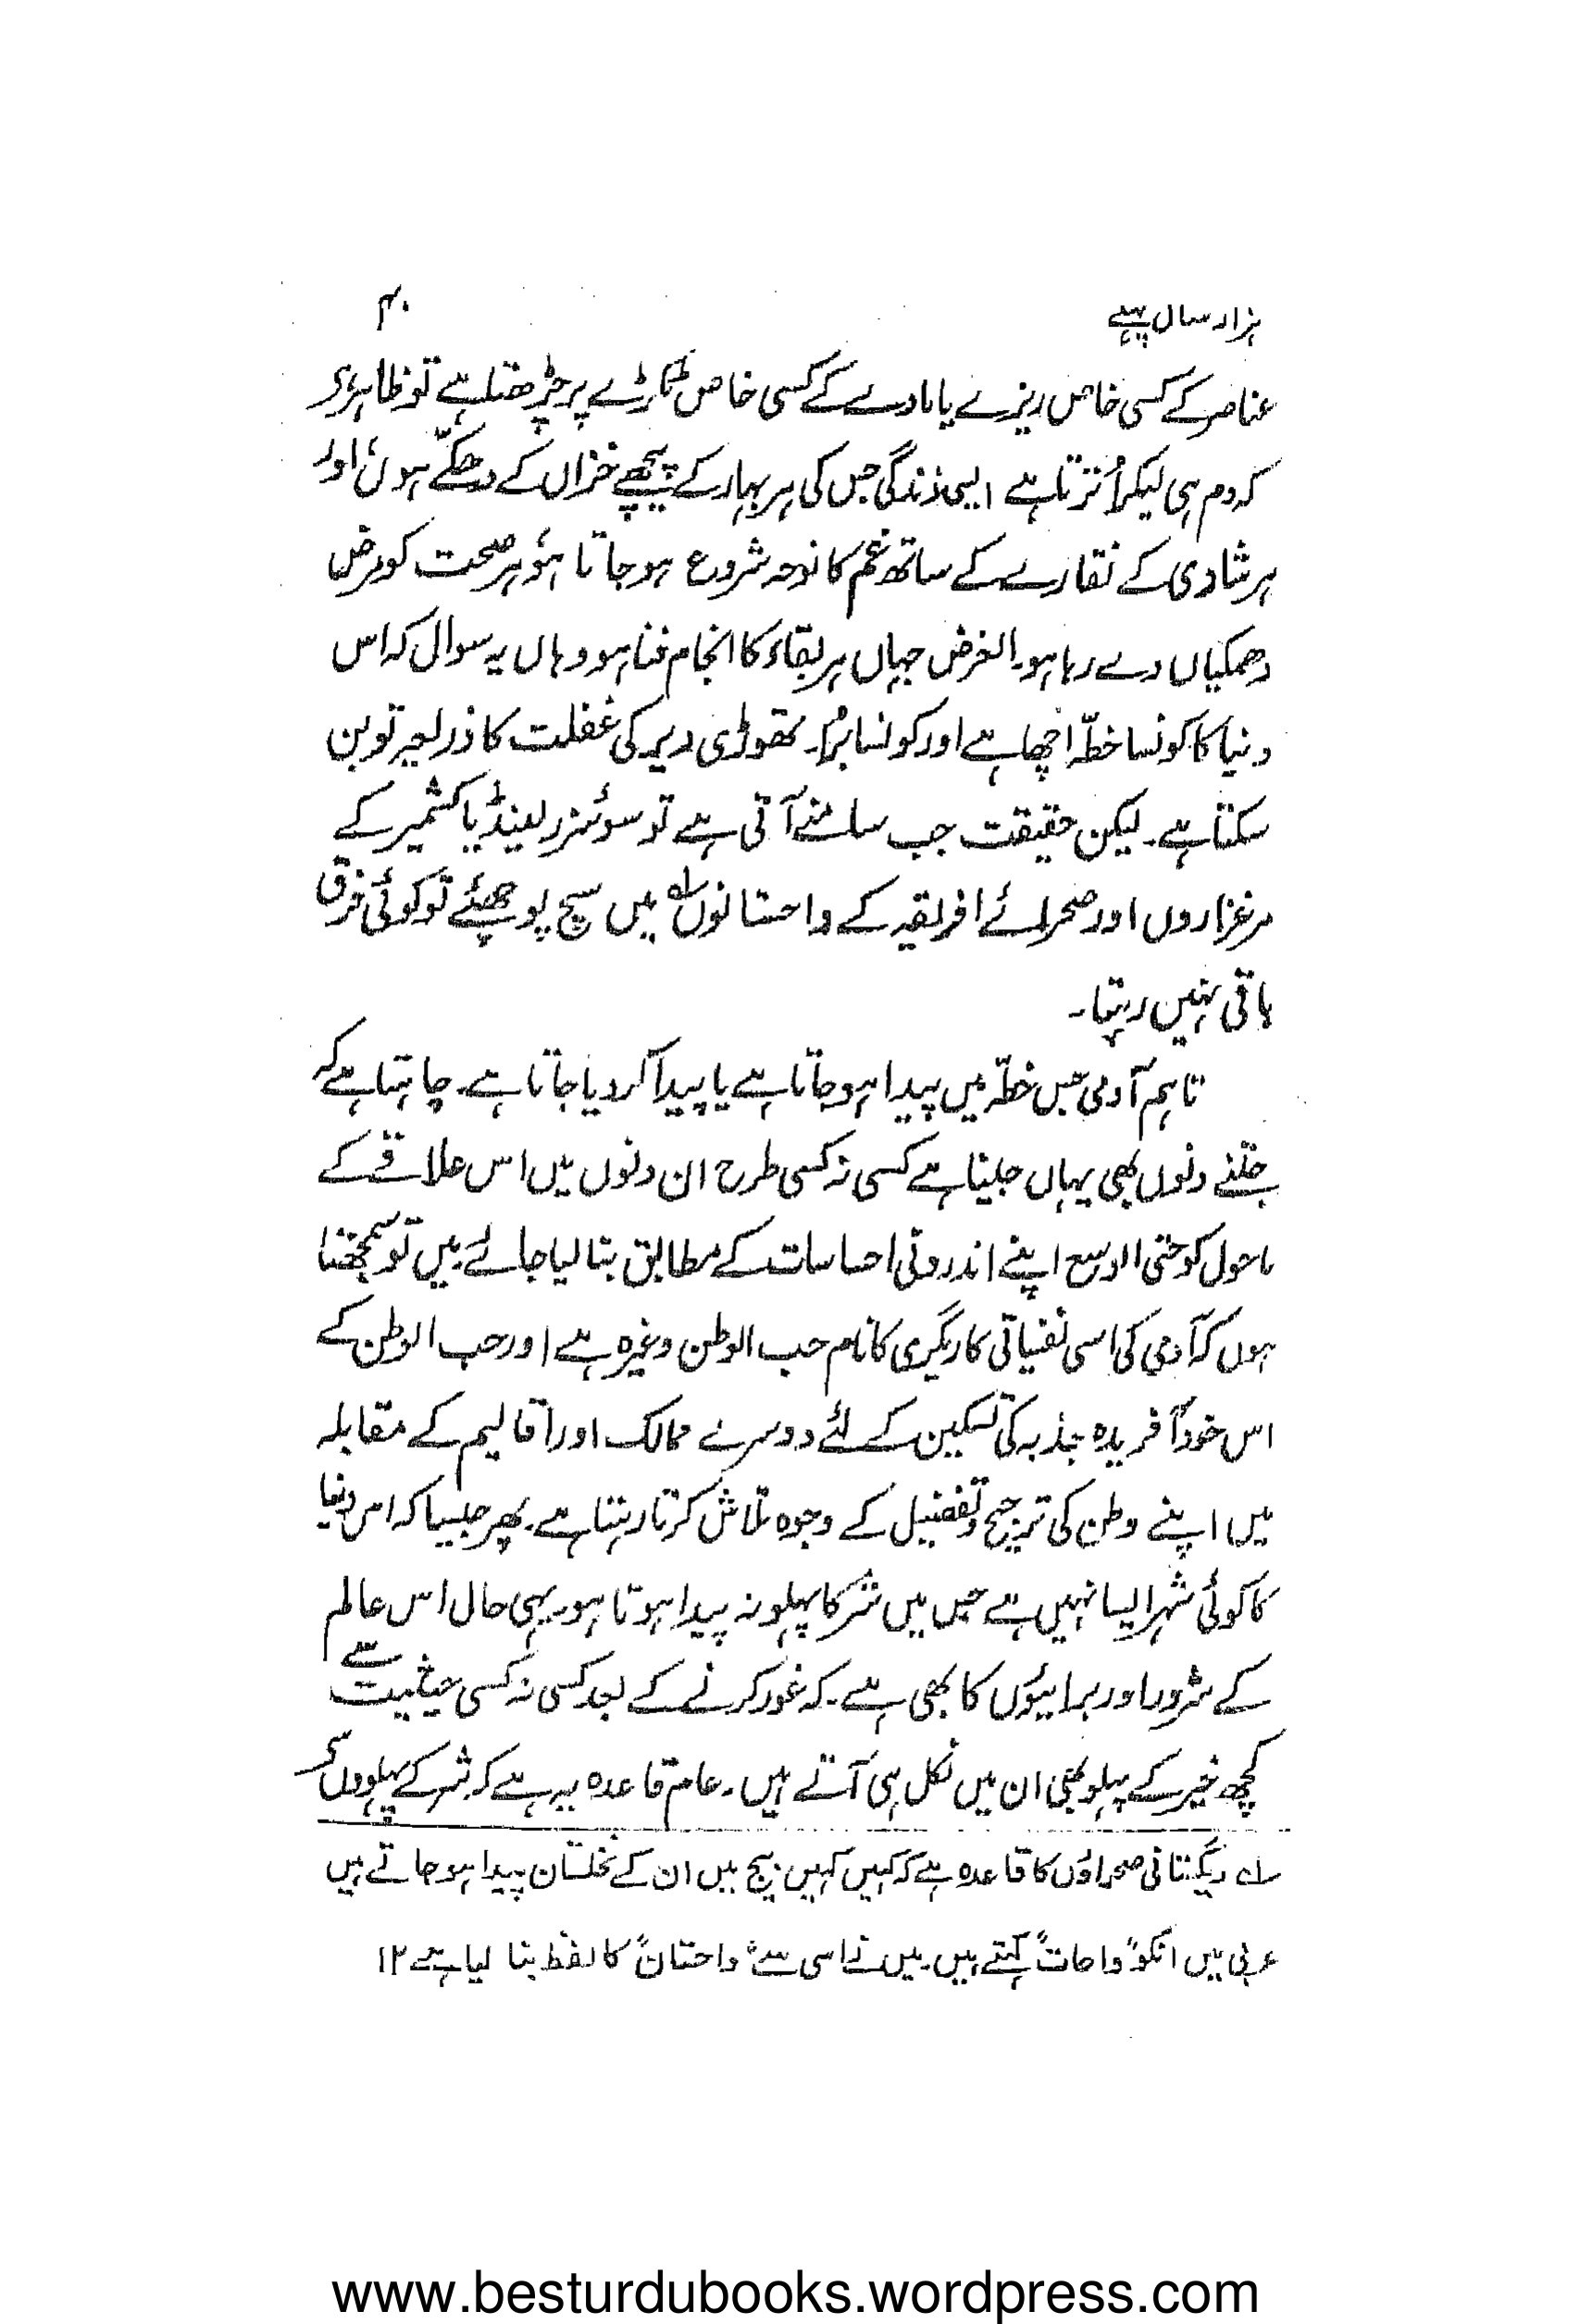 ہزار سال پہلے ۴۰
عناصر کے کسی خاص ریزے یا مادے کے کسی خاص ٹکڑے پر چڑھتا ہے تو ظاہر ہے
کہ دم ہی لیکر اُترتا ہے ایسی زندگی جس کی ہر بہار کے پیچھے خزاں کے دھکّے ہوں، اور
ہر شادی کے نقارے کے ساتھ غم کا نوحہ شروع ہو جاتا ہو، ہر صحت کو مرض
دھمکیاں دے رہا ہو۔ الغرض جہاں ہر بقاء کا انجام فنا ہو وہاں یہ سوال کہ اس
دنیا کا کونسا خطّہ اچھا ہے اور کونسا بُرا۔ تھوڑی دیر کی غفلت کا ذریعہ تو بن
سکتا ہے۔ لیکن حقیقت جب سامنے آتی ہے تو سوئنزرلینڈ یا کشمیر کے
مرغزاروں اور صحرائے افریقہ کے واحتانوں؎۱ میں سچ پوچھئے تو کوئی فرق
باقی نہیں رہتا۔
تاہم آدمی جس خطّہ میں پیدا ہو جاتا ہے یا پیدا کر دیا جاتا ہے۔ چاہتا ہے کہ
جتنے دنوں بھی یہاں جینا ہے کسی نہ کسی طرح ان دنوں میں اس علاقے کے
ماحول کو حتی الوسع اپنے اندرونی احساسات کے مطابق بنا لیا جائے۔ میں تو سمجھتا
ہوں کہ آدمی کی اسی نفسیاتی کاریگری کا نام حب الوطن وغیرہ ہے اور حب الوطن کے
اس خود آفریدہ جذبہ کی تسکین کے لئے دوسرے ممالک اور اقالیم کے مقابلہ
میں اپنے وطن کی ترجیح و تفضیل کے وجوہ تلاش کرتا رہتا ہے۔ پھر جیسا کہ اس دنیا
کا کوئی شہر ایسا نہیں ہے جس میں شر کا پہلو نہ پیدا ہوتا ہو۔ یہی حال اس عالم
کے شرور اور برائیوں کا بھی ہے۔ کہ غور کرنے کے بعد کسی نہ کسی حیثیت سے
کچھ خیر کے پہلو بھی ان میں نکل ہی آتے ہیں۔ عام قاعدہ یہ ہے کہ شر کے پہلوؤں سے
؎۱ ریگستانی صحراؤں کا قاعدہ ہے کہ کہیں کہیں بیچ میں ان کے نخلستان پیدا ہو جاتے ہیں
عربی میں انکو "واحات" کہتے ہیں۔ میں نے اسی سے "واحتان" کا لفظ بنا لیا ہے ۱۲
www.besturdubooks.wordpress.com